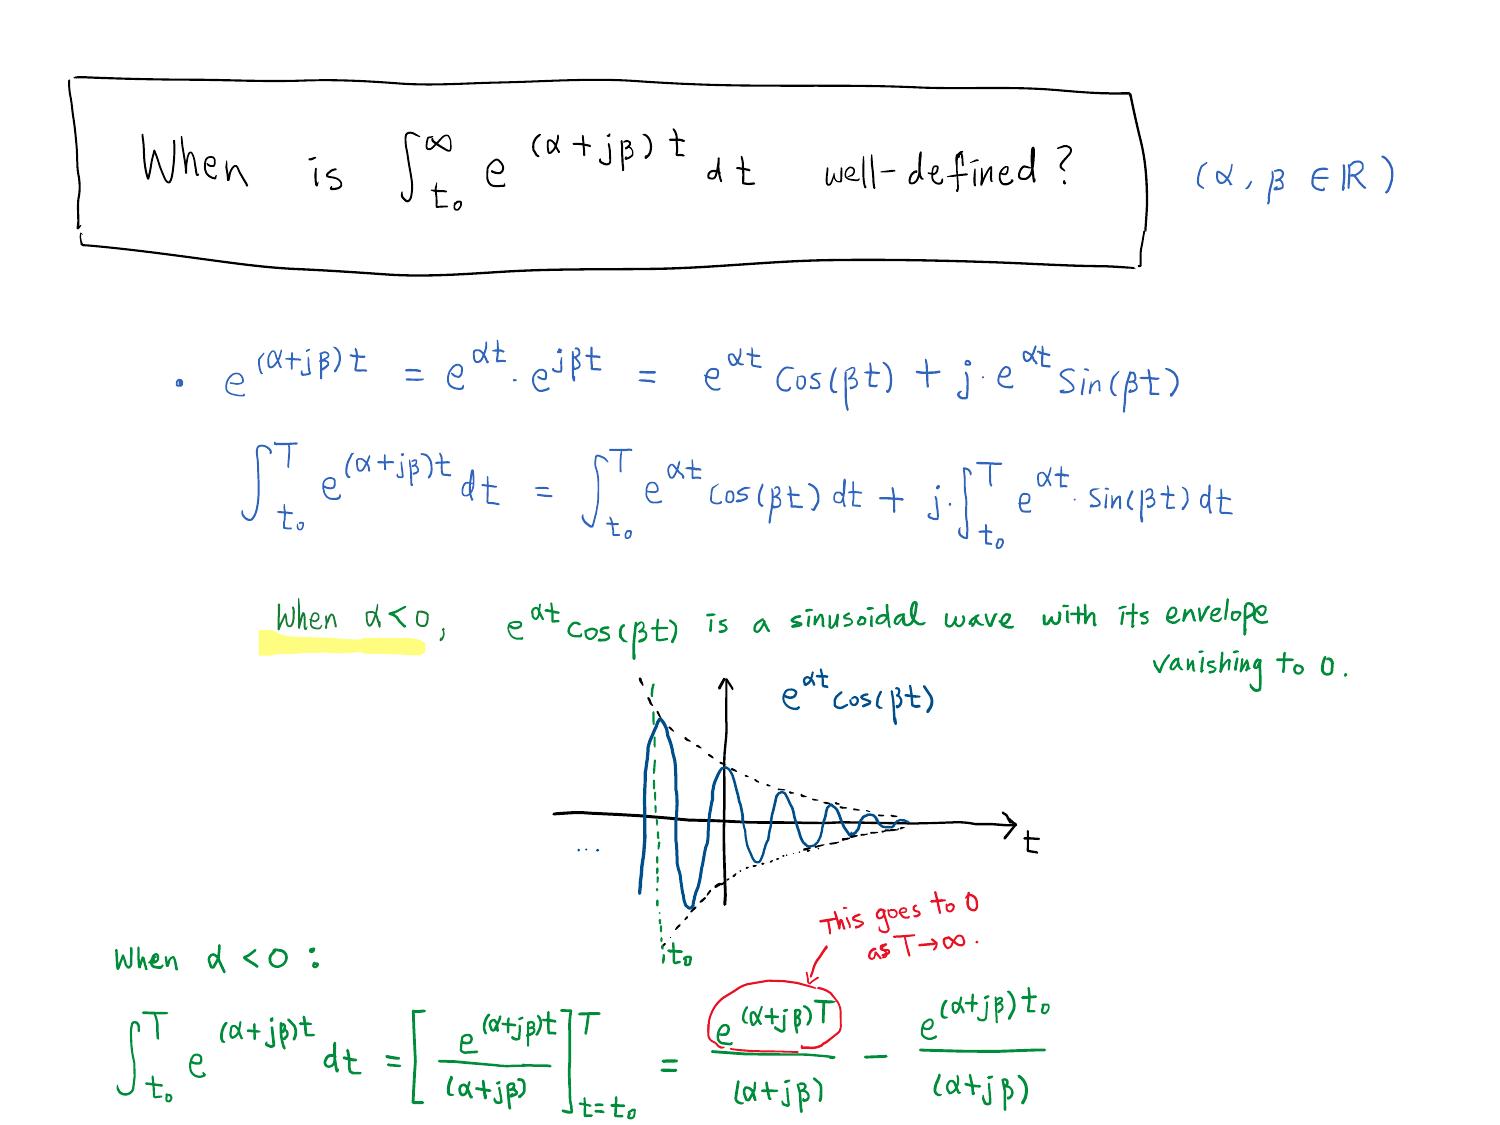 When is ∫_{t₀}^{∞} e^{(α+jβ)t} dt well-defined? (α, β ∈ ℝ)
• e^{(α+jβ)t} = e^{αt} · e^{jβt} = e^{αt} Cos(βt) + j · e^{αt} Sin(βt)
∫_{t₀}^{T} e^{(α+jβ)t} dt = ∫_{t₀}^{T} e^{αt} Cos(βt) dt + j · ∫_{t₀}^{T} e^{αt} · Sin(βt) dt
When α<0, e^{αt} cos(βt) is a sinusoidal wave with its envelope
vanishing to 0.
e^{αt} cos(βt)
...
t
t₀
This goes to 0
as T→∞.
When α<0 :
∫_{t₀}^{T} e^{(α+jβ)t} dt = [ e^{(α+jβ)t} / (α+jβ) ]_{t=t₀}^{T} = e^{(α+jβ)T} / (α+jβ) − e^{(α+jβ)t₀} / (α+jβ)